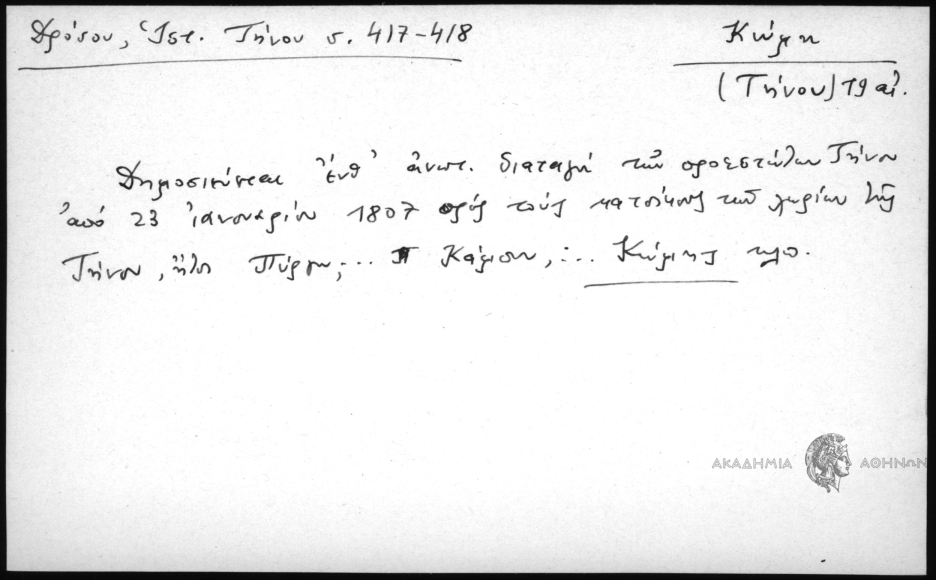 Δρόσου, Ἱστ. Τήνου σ. 417-418
Κώμη
(Τήνου) 19 αἰ.
Δημοσιεύεται ἔνθ' ἀνωτ. διαταγή τῶν προεστώτων Τήνου
ἀπό 23 ἰανουαρίου 1807 πρός τούς κατοίκους τῶν χωρίων τῆς
Τήνου, ἤτοι Πύργου, ... Κάμπου, ... Κώμης κλπ.
ΑΚΑΔΗΜΙΑ ΑΘΗΝΩΝ